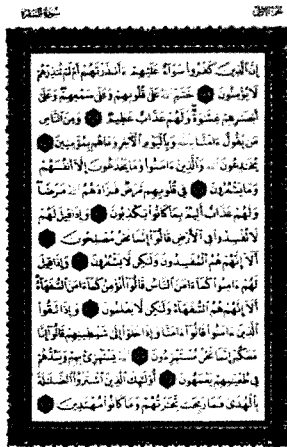 سورة البقرة
الجزء الأول
إن الذين كفروا سواء عليهم ءأنذرتهم أم لم تنذرهم
لا يؤمنون ختم الله على قلوبهم وعلى سمعهم وعلى
أبصرهم غشوة ولهم عذاب عظيم ومن الناس
من يقول ءامنا بالله وباليوم الآخر وما هم بمؤمنين
يخدعون الله والذين ءامنوا وما يخدعون إلا أنفسهم
وما يشعرون في قلوبهم مرض فزادهم الله مرضا
ولهم عذاب أليم بما كانوا يكذبون وإذا قيل لهم
لا تفسدوا في الأرض قالوا إنما نحن مصلحون
ألا إنهم هم المفسدون ولكن لا يشعرون وإذا قيل
لهم ءامنوا كما ءامن الناس قالوا أنؤمن كما ءامن السفهاء
ألا إنهم هم السفهاء ولكن لا يعلمون وإذا لقوا
الذين ءامنوا قالوا ءامنا وإذا خلوا إلى شيطينهم قالوا إنا
معكم إنما نحن مستهزءون الله يستهزئ بهم ويمدهم
في طغينهم يعمهون أولئك الذين اشتروا الضللة
بالهدى فما ربحت تجرتهم وما كانوا مهتدين